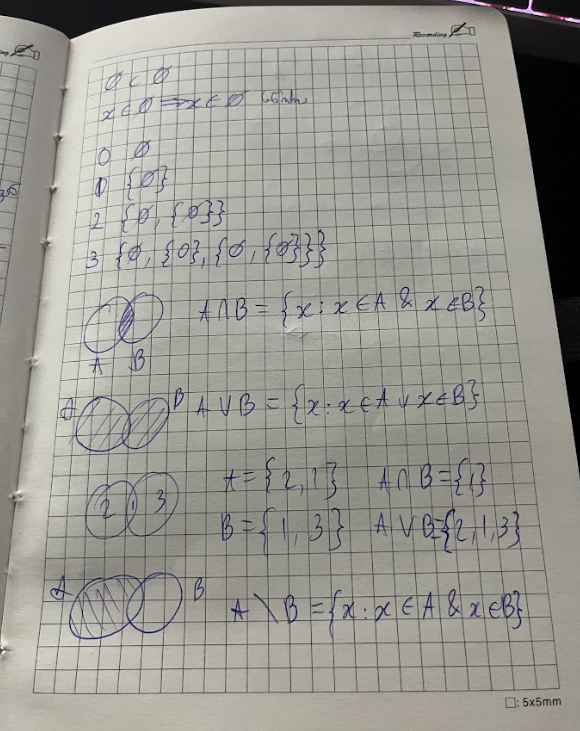 Recording
∅ ⊂ ∅
x ∈ ∅ ⟹ x ∈ ∅
0 ∅
1 {∅}
2 {∅, {∅}}
3 {∅, {∅}, {∅, {∅}}}
A∩B = {x : x ∈ A & x ∈ B}
A B
A B A ∨ B = {x : x ∈ A ∨ x ∈ B}
A = {2, 1} A∩B = {1}
2 1 3
B = {1, 3} A ∨ B = {2, 1, 3}
A B A \ B = {x : x ∈ A & x ∈ B}
□: 5x5mm